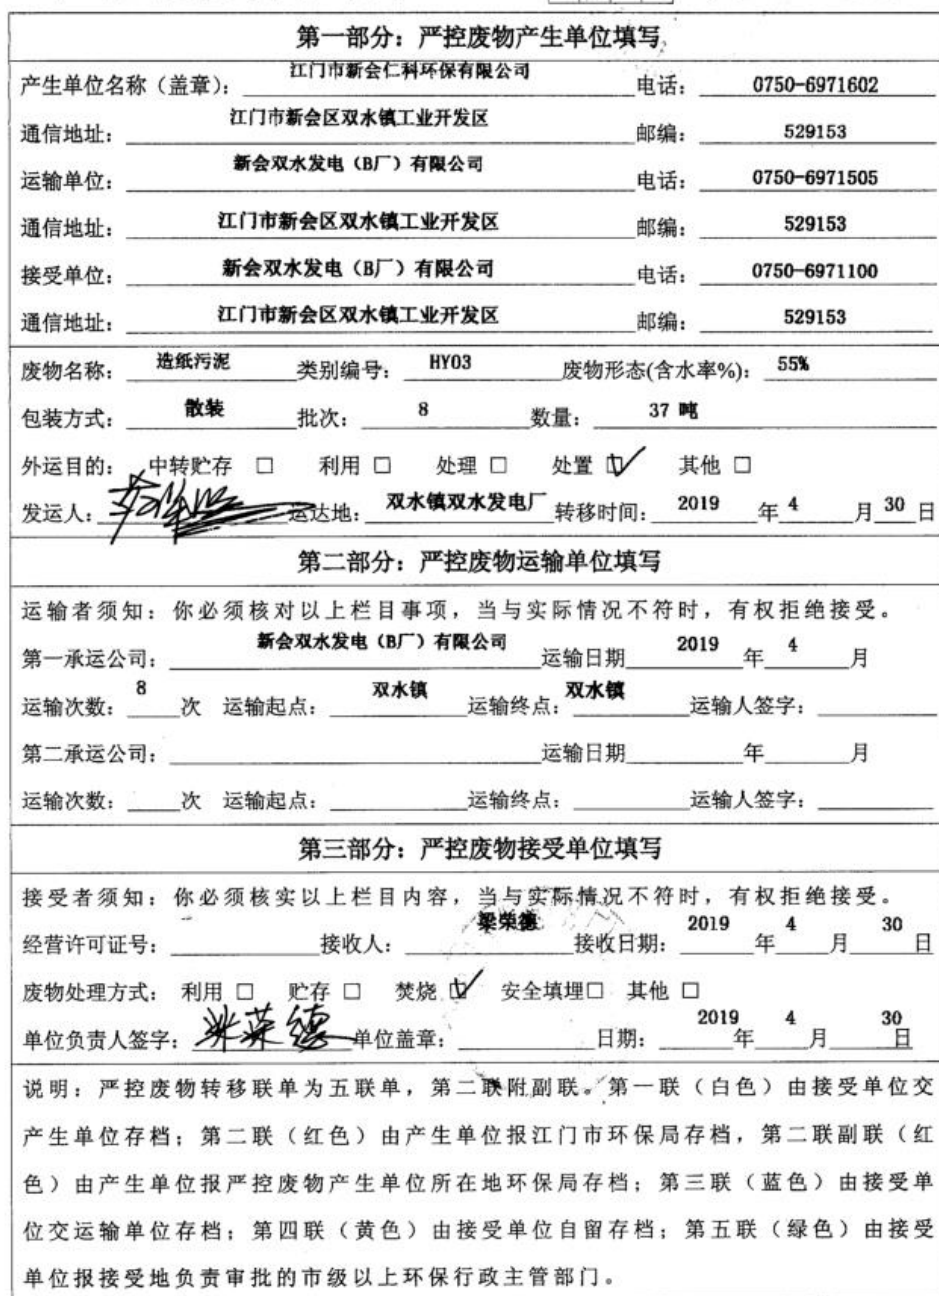 第一部分：严控废物产生单位填写
产生单位名称（盖章）：江门市新会仁科环保有限公司 电话：0750-6971602
通信地址：江门市新会区双水镇工业开发区 邮编：529153
运输单位：新会双水发电（B厂）有限公司 电话：0750-6971505
通信地址：江门市新会区双水镇工业开发区 邮编：529153
接受单位：新会双水发电（B厂）有限公司 电话：0750-6971100
通信地址：江门市新会区双水镇工业开发区 邮编：529153
废物名称：造纸污泥 类别编号：HY03 废物形态(含水率%)：55%
包装方式：散装 批次：8 数量：37 吨
外运目的：中转贮存 □ 利用 □ 处理 □ 处置 ☑ 其他 □
发运人： 运达地：双水镇双水发电厂 转移时间：2019 年 4 月 30 日
第二部分：严控废物运输单位填写
运输者须知：你必须核对以上栏目事项，当与实际情况不符时，有权拒绝接受。
第一承运公司：新会双水发电（B厂）有限公司 运输日期 2019 年 4 月
运输次数：8 次 运输起点：双水镇 运输终点：双水镇 运输人签字：
第二承运公司： 运输日期 年 月
运输次数： 次 运输起点： 运输终点： 运输人签字：
第三部分：严控废物接受单位填写
接受者须知：你必须核实以上栏目内容，当与实际情况不符时，有权拒绝接受。
经营许可证号： 接收人：梁荣德 接收日期：2019 年 4 月 30 日
废物处理方式：利用 □ 贮存 □ 焚烧 ☑ 安全填埋□ 其他 □
单位负责人签字：梁荣德 单位盖章： 日期：2019 年 4 月 30 日
说明：严控废物转移联单为五联单，第二联附副联。第一联（白色）由接受单位交
产生单位存档；第二联（红色）由产生单位报江门市环保局存档，第二联副联（红
色）由产生单位报严控废物产生单位所在地环保局存档；第三联（蓝色）由接受单
位交运输单位存档；第四联（黄色）由接受单位自留存档；第五联（绿色）由接受
单位报接受地负责审批的市级以上环保行政主管部门。